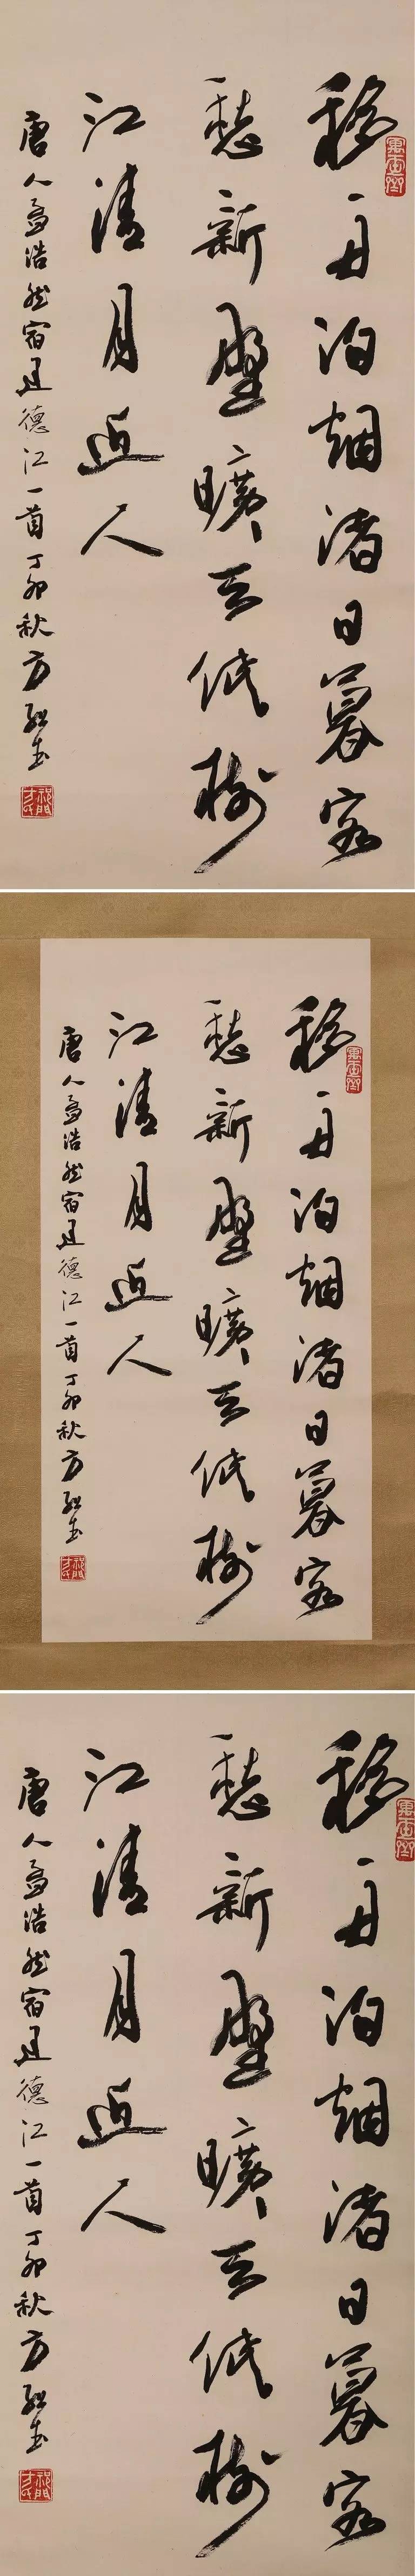 移舟泊烟渚日暮客
愁新野曠天低樹
江清月近人
唐人孟浩然宿建德江一首丁卯秋方紹武
移舟泊烟渚日暮客
愁新野曠天低樹
江清月近人
唐人孟浩然宿建德江一首丁卯秋方紹武
移舟泊烟渚日暮客
愁新野曠天低樹
江清月近人
唐人孟浩然宿建德江一首丁卯秋方紹武